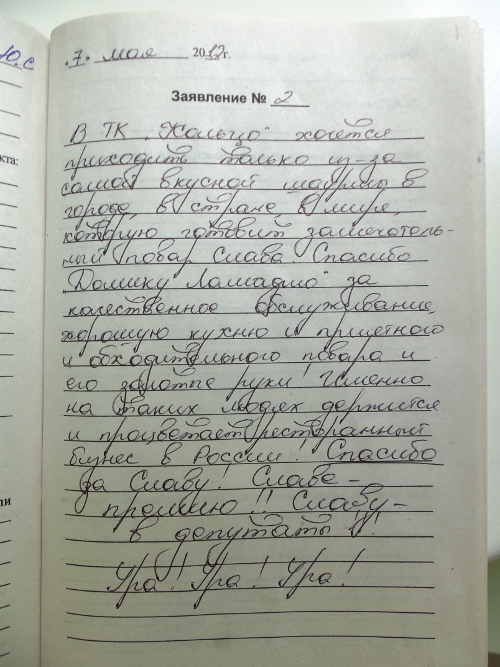 "7" мая 2012г.
Заявление № 2
В ТК "Кольцо" хочется
приходить только из-за
самой вкусной шаурмы в
городе, в стране, в мире,
которую готовит замечатель-
ный повар Слава! Спасибо
"Домику Ломадио" за
качественное обслуживание,
хорошую кухню и приветного
и обходительного повара и
его золотые руки! Именно
на таких людях держится
и процветает ресторанный
бизнес в России! Спасибо
за Славу! Славе -
премию!! Славу -
в депутаты!!!
Ура! Ура! Ура!
Ю.с
кта:
ли